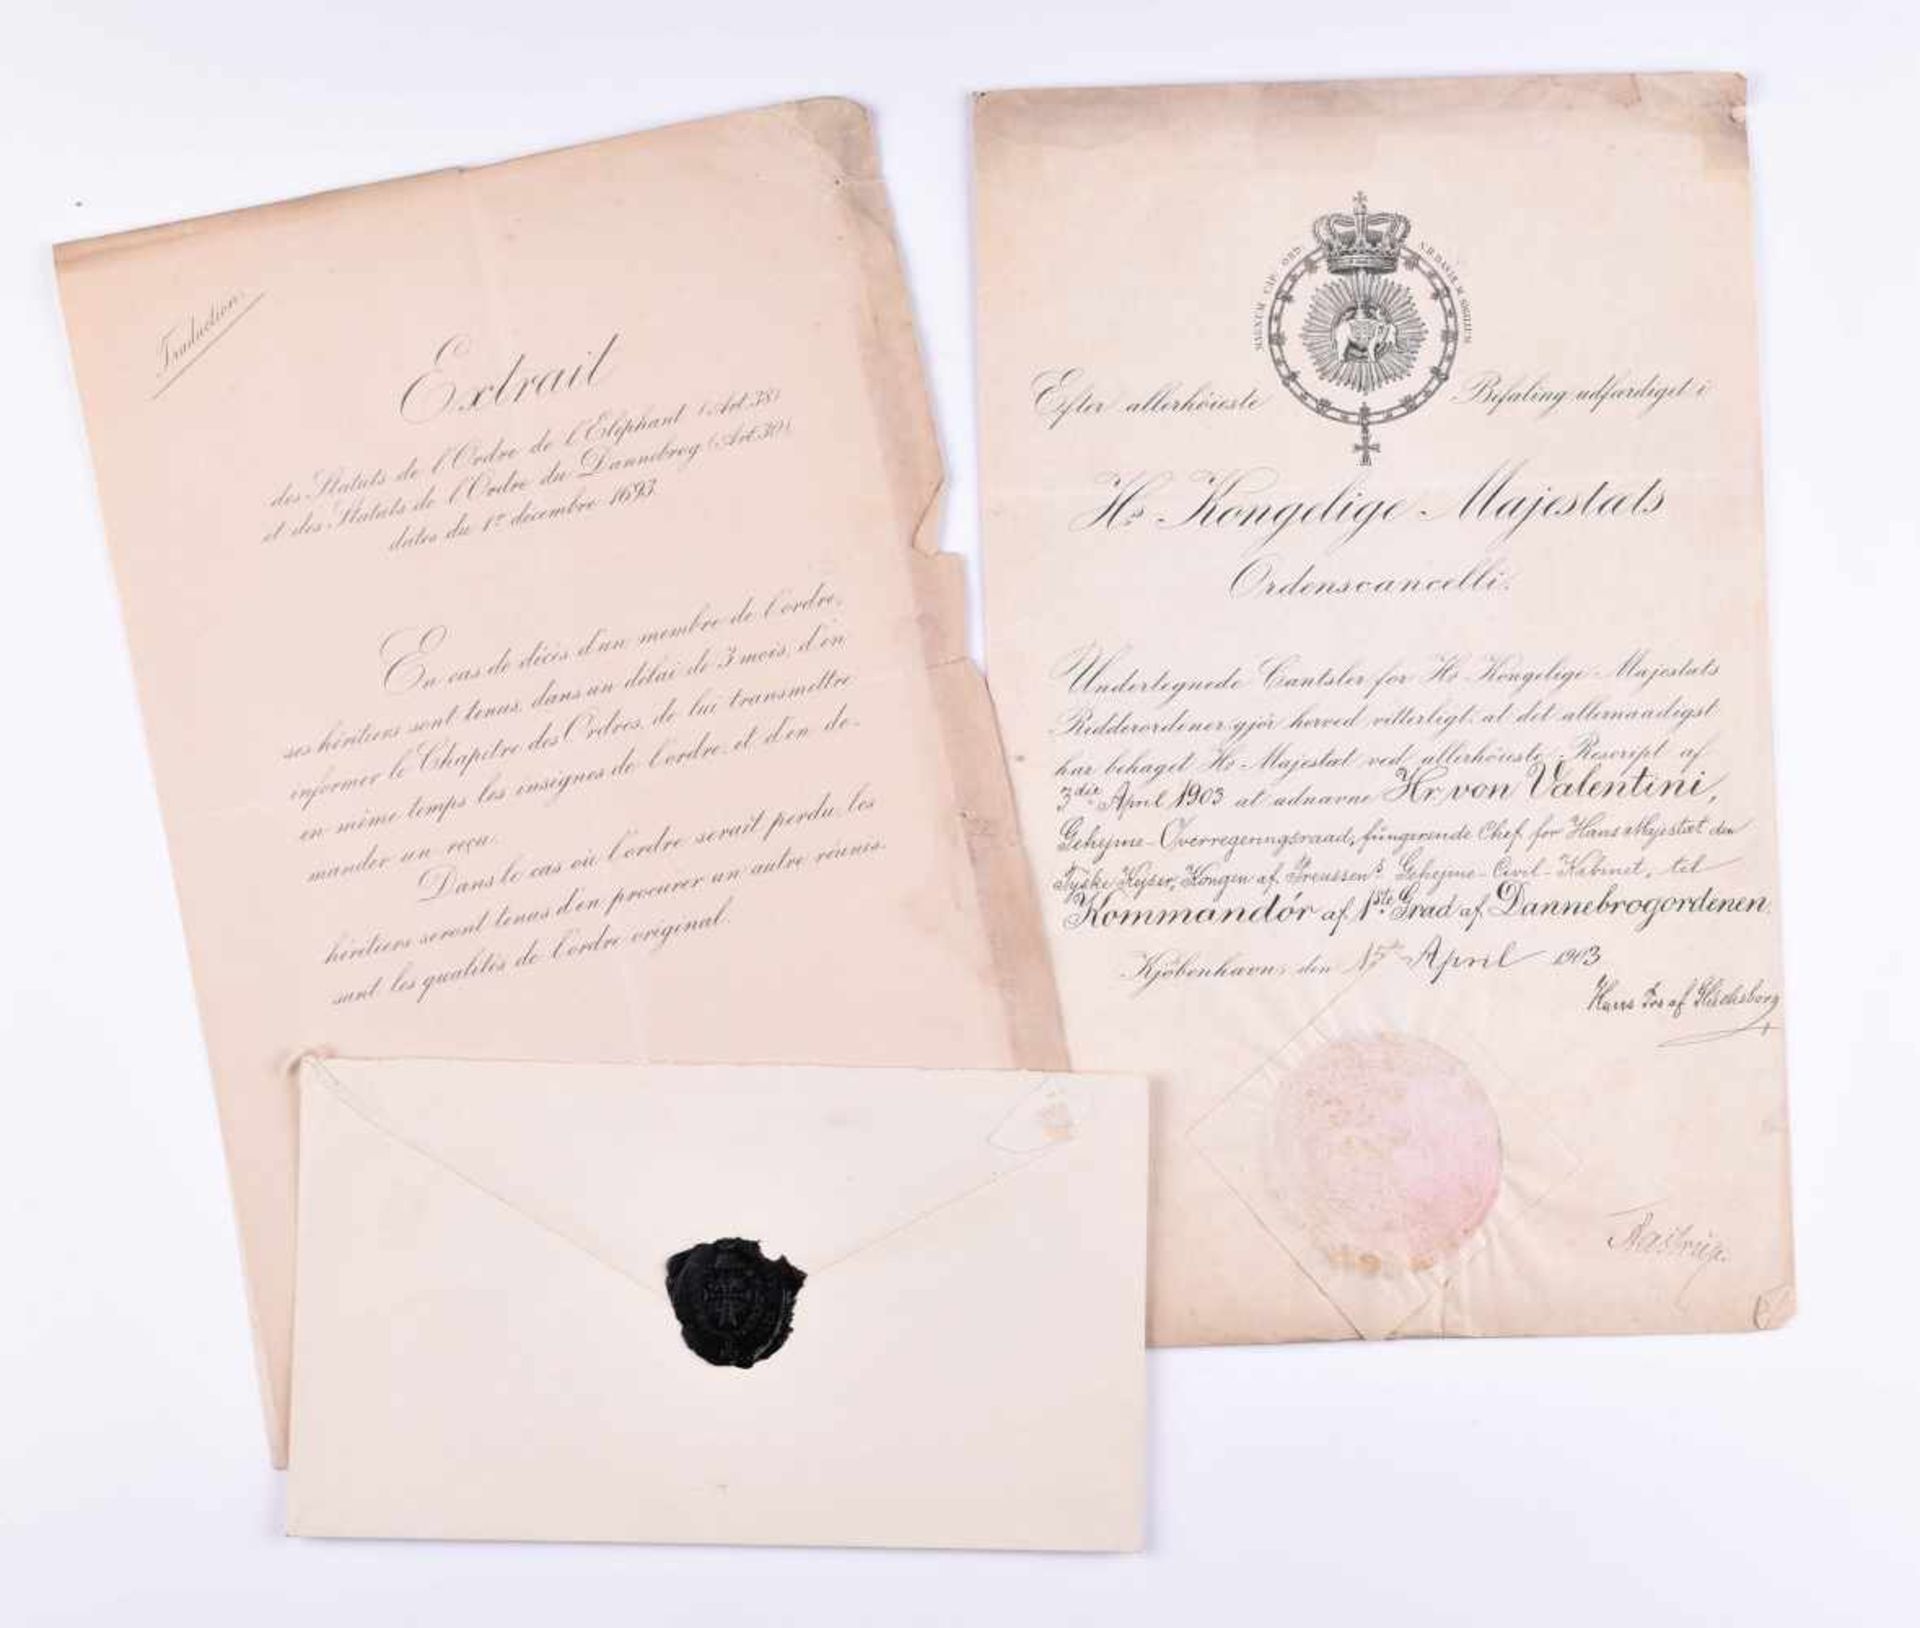 Traduction.
Extrait
des Statuts de l'Ordre de l'Eléphant (Art. 38)
et des Statuts de l'Ordre du Dannebrog (Art. 30),
datés du 1er décembre 1693.
En cas de décès d'un membre de l'ordre,
ses héritiers sont tenus, dans un délai de 3 mois, d'en
informer le Chapitre des Ordres, de lui transmettre
en même temps les insignes de l'ordre, et d'en de-
mander un reçu.
Dans le cas où l'ordre serait perdu, les
héritiers seront tenus d'en procurer un autre réunis-
sant les qualités de l'ordre original.
MAGNUM CAP. ORD. R. DANEB. M SIGILLUM
Efter allerhøieste Befaling udfærdiget i
Hs. Kongelige Majestæts
Ordenscancelli.
Undertegnede Cantsler for Hs Kongelige Majestæts
Ridderordener, gjør herved vitterligt, at det allernaadigst
har behaget Hs Majestæt ved allerhøieste Rescript af
3die April 1903 at udnævne Hr. von Valentini,
Geheime-Overregeringsraad, fungerende Chef for Hans Majestæt den
Tyske Kejser, Kongen af Preussens Geheime-Civil-Kabinet, til
Kommandör af 1ste Grad af Dannebrogordenen.
Kjøbenhavn, den 15de April 1903
Hans Prs af Glücksborg